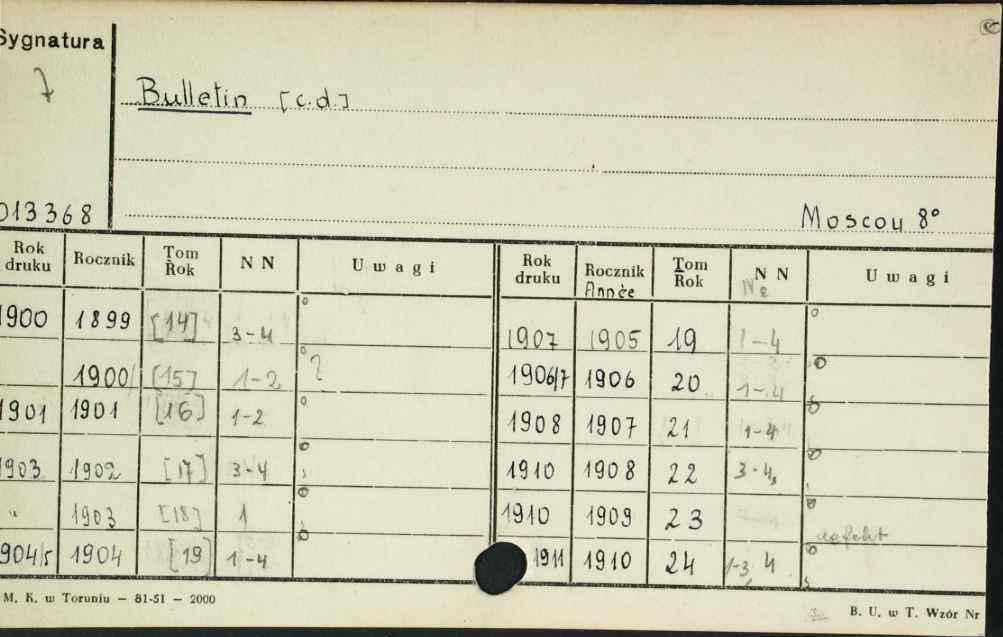 Sygnatura
7
Bulletin [c.d.]
013368
Moscou 8°
Rok druku Rocznik Tom Rok N N Uwagi Rok druku Rocznik Année Tom Rok N N Uwagi
1900 1899 [14] 3-4 1907 1905 19 1-4
1900 [15] 1-2 ? 1906/7 1906 20 1-4
1901 1901 [16] 1-2 1908 1907 21 1-4
1903 1902 [17] 3-4 1910 1908 22 3-4,
" 1903 [18] 1 1910 1909 23
1904/5 1904 [19] 1-4 1911 1910 24 1-3, 4
M. K. w Toruniu — 81-51 — 2000
B. U. w T. Wzór Nr